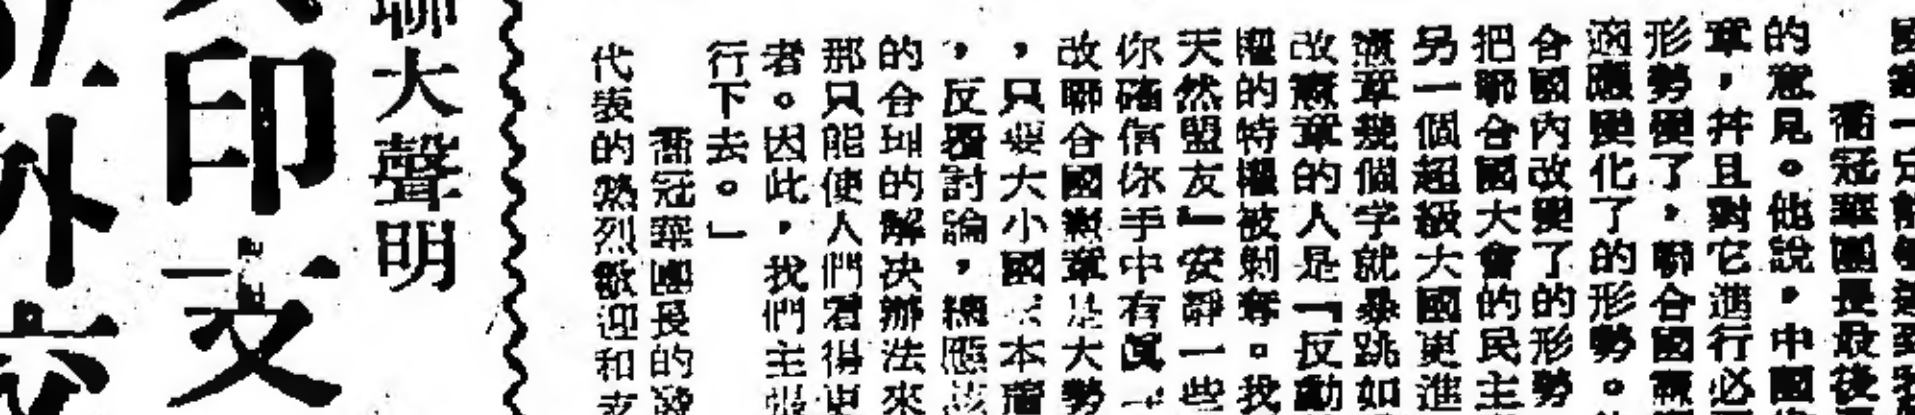 一定能
喬冠華團長最後
的意見。他說，中國
章，并且對它進行必
形勢變了，聯合國憲
適應變化了的形勢。
合國內改變了的形勢
把聯合國大會的民主
另一個超級大國更進
憲章幾個字就暴跳如
改憲章的人是『反動
權的特權被剝奪。我
天然盟友』安靜一些
你確信你手中有真
改聯合國憲章是大勢
，只要大小國本着
，反覆討論，總應該
的合理的解决辦法來
那只能使人們看得更
者。因此，我們主張
行下去。」
喬冠華團長的發
代表的熱烈歡迎和支
聯大聲明
印支
外交